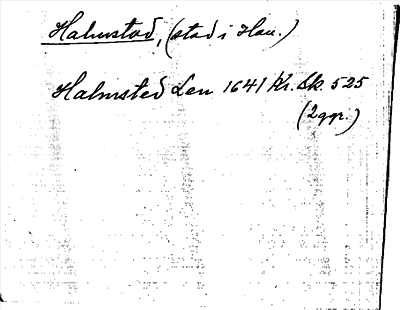 Halmstad, (stad i Hall.)
Halmsted Len 1641 Kr. Sk. 525
(2 ggr.)